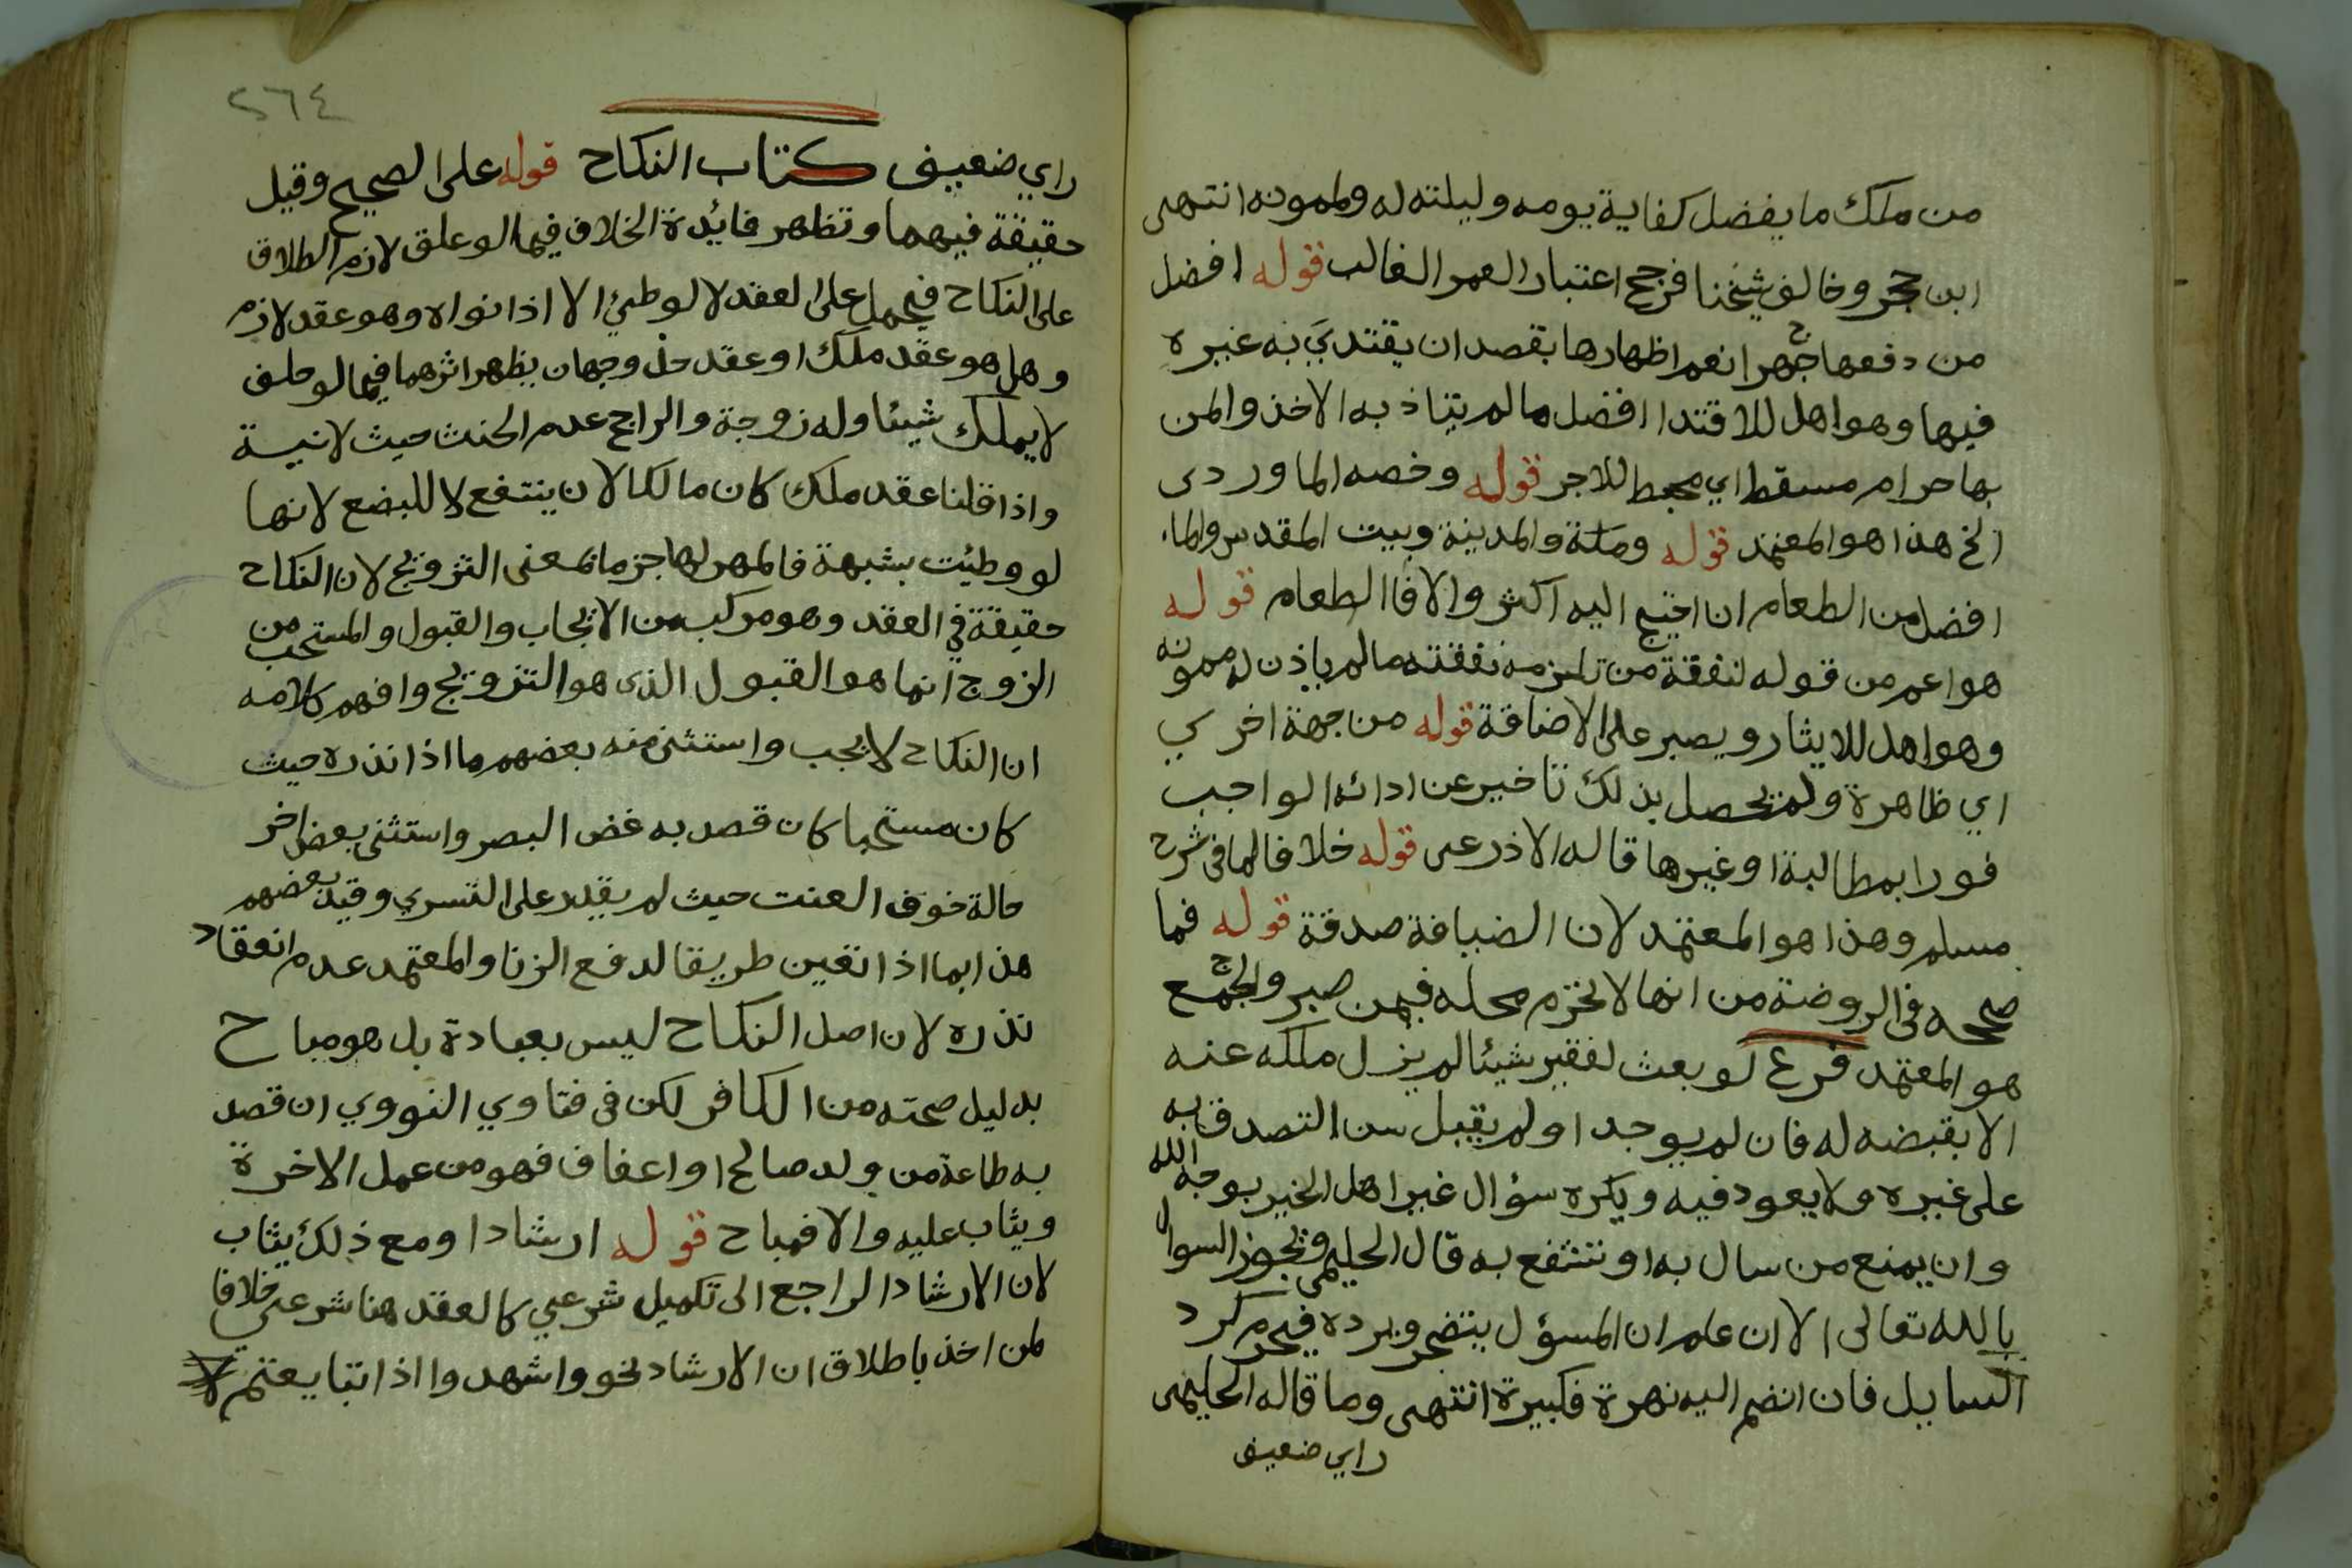 من ملك ما يفضل كفاية يومه وليلته له ولممونه انتهى
ابن حجر وخالف شيخنا فرجح اعتبار العمر الغالب قوله افضل
من دفعها جهرا نعم اظهارها بقصد ان يقتدي به غيره
فيها وهو اهل للاقتدا افضل ما لم يتاذ به الاخذ والمن
بها حرام مسقط اي محبط للاجر قوله وخصه الماوردى
الخ هذا هو المعتمد قوله ومكة والمدينة وبيت المقدس والماء
افضل من الطعام ان احتيج اليه اكثر والا فالطعام قوله
هو اعم من قوله لنفقة من تلزمه نفقته ما لم ياذن له ممونه
وهو اهل للايثار ويصبر على الاضاقة قوله من جهة اخرى
اي ظاهرة ولم يحصل بذلك تاخير عن ادائه الواجب
فورا بمطالبة او غيرها قاله الاذرعى قوله خلافا لما فى شرح
مسلم وهذا هو المعتمد لان الضيافة صدقة قوله فما
صححه فى الروضة من انها لا تحرم محله فيمن صبر والجمع
هو المعتمد فرع لو بعث لفقير شيئا لم يزل ملكه عنه
الا بقبضه له فان لم يوجد او لم يقبل سن التصدق به
على غيره ولا يعود فيه ويكره سؤال غير اهل الخير بوجه الله
وان يمنع من سال به او تشفع به قال الحليمى وتجوز السوال
بالله تعالى الا ان علم ان المسؤل يتضجر ويرده فيحرم كرد
السايل فان انضم اليه نهرة فكبيرة انتهى وما قاله الحليمى
راي ضعيف
٢٦٤
راي ضعيف كتاب النكاح قوله على الصحيح وقيل
حقيقة فيهما وتظهر فائدة الخلاف فيما لو علق لازم الطلاق
على النكاح فيحمل على العقد لا الوطئ الا اذا نواه وهو عقد لازم
وهل هو عقد ملك او عقد حل وجهان يظهر اثرهما فيما لو حلف
لا يملك شيئا وله زوجة والراجح عدم الحنث حيث لا نية
واذا قلنا عقد ملك كان مالكا لان ينتفع لا للبضع لانها
لو وطئت بشبهة فالمهر لها جزما بمعنى التزويج لان النكاح
حقيقة في العقد وهو مركب من الايجاب والقبول والمستحب من
الزوج انما هو القبول الذى هو التزويج وافهم كلامه
ان النكاح لا يجب واستثنى منه بعضهم ما اذا نذره حيث
كان مستحبا كان قصد به غض البصر واستثنى بعض اخر
حالة خوف العنت حيث لم يقدر على التسري وقيد بعضهم
هذا بما اذا تعين طريقا لدفع الزنا والمعتمد عدم انعقاد
نذره لان اصل النكاح ليس بعبادة بل هو مباح
بدليل صحته من الكافر لكن فى فتاوي النووي ان قصد
به طاعة من ولد صالح او اعفاف فهو من عمل الاخرة
ويثاب عليه والا فمباح قوله ارشادا ومع ذلك يثاب
لان الارشاد الراجع الى تكميل شرعي كالعقد هنا شرعي خلافا
لمن اخذ باطلاق ان الارشاد نحو واشهدوا اذا تبايعتم لا